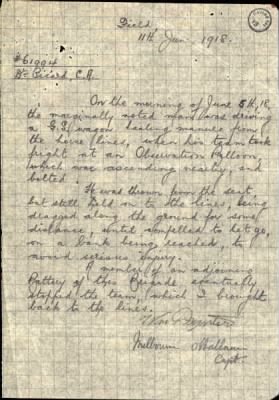 Field
11th Jun. 1918.
#61994
Dr Picard, C.A.
On the morning of June 5th, 18,
the marginally noted man was driving
a G.S. wagon hauling manure from
the horse lines, when his team took
fright at an Observation Balloon,
which was ascending nearby, and
bolted.
He was thrown from the seat,
but still held on to the lines, being
dragged along the ground for some
distance, until compelled to let go,
on a bank being reached, to
avoid serious injury.
A member of an adjoining
Battery of this Brigade eventually
stopped the team, which I brought
back to the lines.
Capt.